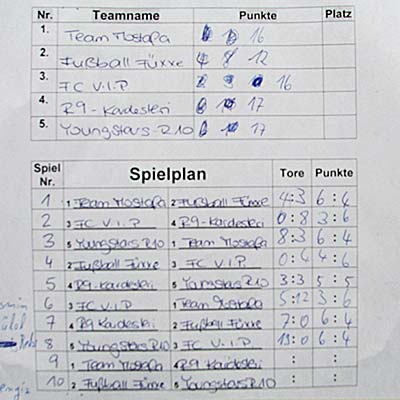 Nr. Teamname Punkte Platz
1. Team Mostafa 16
2. Fußball Füxxe 4 8 12
3. FC V.I.P 16
4. R9-Kardesleri 17
5. Youngstars R10 17
Spiel Nr. Spielplan Tore Punkte
1 1 Team Mostafa 2 Fußball Füxxe 4:3 6:4
2 3 FC V.I.P 4 R9-Kardesleri 0:8 3:6
3 5 Youngstars R10 1 Team Mostafa 8:3 6:4
4 2 Fußball Füxxe 3 FC V.I.P 0:6 4:6
5 4 R9-Kardesleri 5 Youngstars R10 3:3 5:5
6 3 FC V.I.P 1 Team Mostafa 5:12 3:6
7 4 R9 Kardesleri 2 Fußball Füxxe 7:0 6:4
8 5 Youngstars R10 3 FC V.I.P 6:4
9 1 Team Mostafa 4 R9 Kardesleri : :
10 2 Fußball Füxxe 5 Youngstars R10 : :